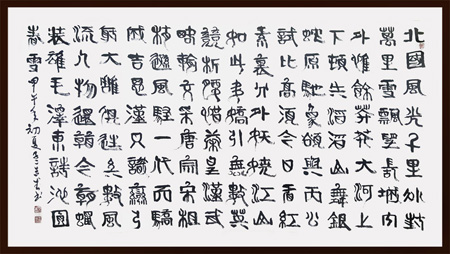 北國風光千里冰封
萬里雪飄望長城内
外惟餘莽莽大河上
下頓失滔滔山舞銀
蛇原馳象欲與天公
試比高須今日看紅
素裹分外妖嬈江山
如此多嬌引無數英
競折腰惜秦皇漢武
略輸文采唐宗宋祖
稍遜風騷一代天驕
成吉思漢只識彎弓
射大雕俱往矣數風
流人物還朝今朝蠟
裝雄毛澤東詩沁園
春雪 甲午年初夏